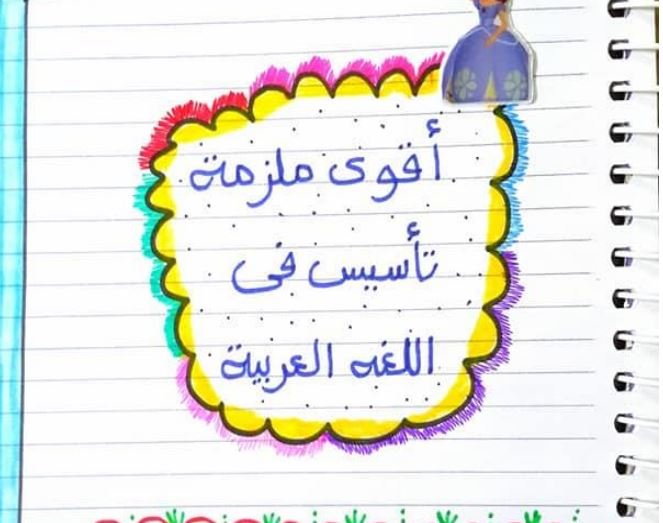 أقوى ملزمة
تأسيس فى
اللغه العربية